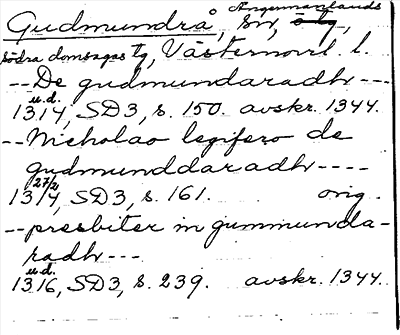 Gudmundrå, sn, Ångermanlands
södra domsagas tg, Västernorrl. l.
-- De gudmundaradh ---
u.d.
1314, SD3, s. 150. avskr. 1344.
-- Nicholao legifero de
gudmunddaradh ----
27/2
1314, SD3, s. 161. orig.
-- presbiter in gummunda-
radh ---
u.d.
1316, SD3, s. 239. avskr. 1344.